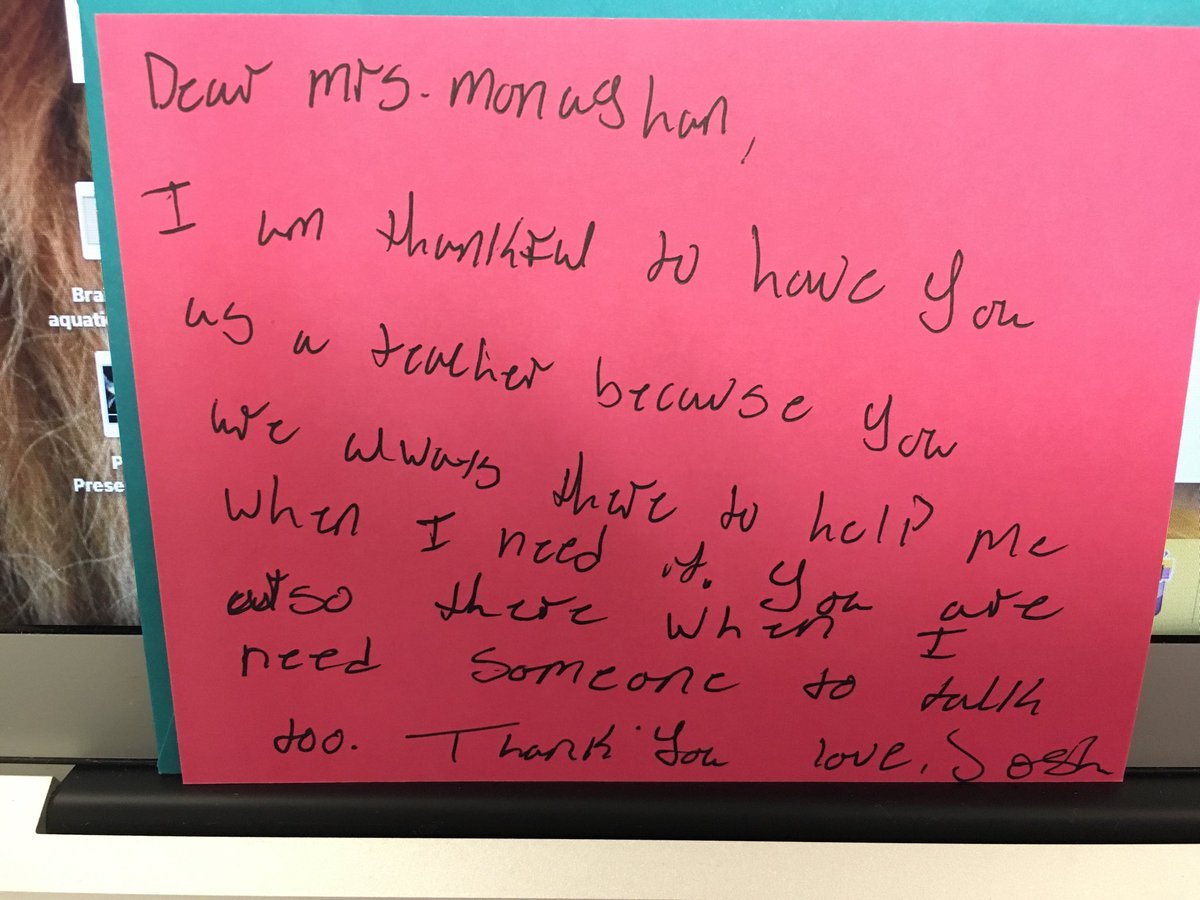 Dear Mrs. Monaghan,
I am thankful to have you
as a teacher because you
are always there to help me
when I need it. You are
also there when I
need someone to talk
too. Thank You love, Josh
Bra
aquati
P
Prese